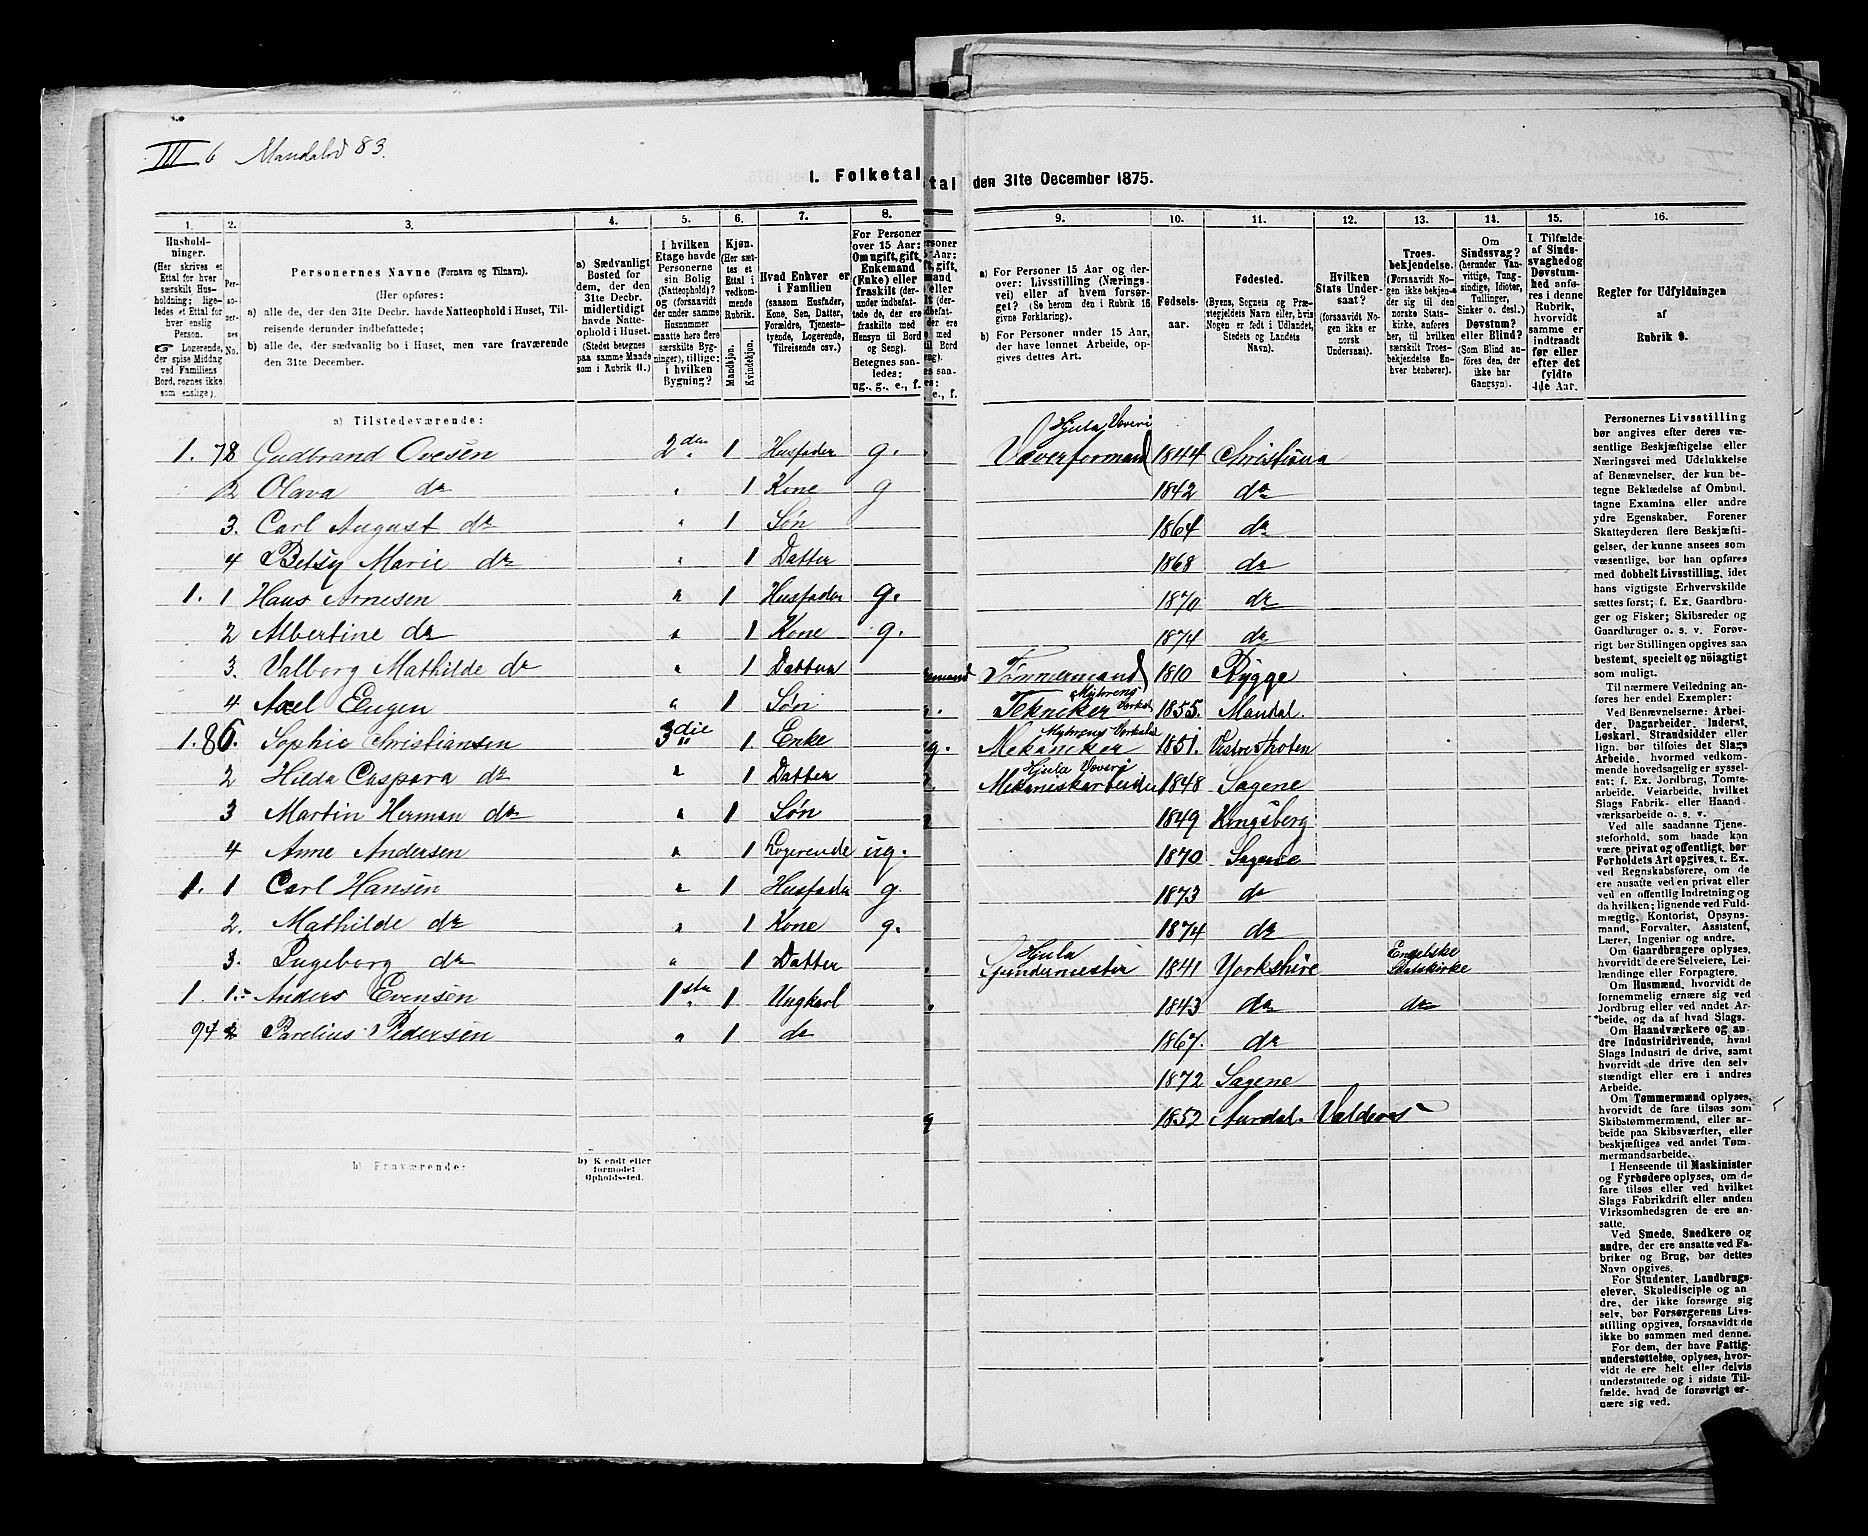 III 6 Mandahd 83.
I. Folketal
tal den 31te December 1875.
1. 2. 3. 4. 5. 6. 7. 8. 9. 10. 11. 12. 13. 14. 15. 16.
Husholdninger.
(Her skrives et Ettal for hver særskilt Husholdning; ligeledes et Ettal for hver enslig Person.
☞ Logerende, der spise Middag ved Familiens Bord, regnes ikke som enslige).
Personernes No.
Personernes Navne (Fornavn og Tilnavn).
(Her opføres:
a) alle de, der den 31te Decbr. havde Natteophold i Huset, Tilreisende derunder indbefattede;
b) alle de, der sædvanlig bo i Huset, men vare fraværende den 31te December.
a) Sædvanligt Bosted for dem, der den 31te Decbr. midlertidigt havde Natteophold i Huset. (Stedet betegnes paa samme Maade som i Rubrik 11.)
I hvilken Etage havde Personerne sin Bolig (Natteophold)? og (forsaavidt der under samme Husnummer maatte høre flere særskilte Bygninger), tillige: i hvilken Bygning?
Kjøn. (Her sættes et Ettal i vedkommende Rubrik.
Mandkjøn. Kvindekjøn.
Hvad Enhver er i Familien
(saasom Husfader, Kone, Søn, Datter, Forældre, Tjenestetyende, Logerende, Tilreisende osv.
For Personer over 15 Aar: Om ugift, gift, Enkemand (Enke) eller fraskilt (derunder indbefattede de, der ere fraskilte med Hensyn til Bord og Seng)
Betegnes saaledes:
ug., g., e., f.
a) For Personer 15 Aar og derover: Livsstilling (Næringsvei) eller af hvem forsørget? (Se herom den i Rubrik 16 givne Forklaring).
b) For Personer under 15 Aar, der have lønnet Arbeide, opgives dettes Art.
Fødselsaar.
Fødested.
(Byens, Sognets og Præstegjeldets Navn eller, hvis Nogen er født i Udlandet, Stedets og Landets Navn).
Hvilken Stats Undersaat?
(forsaavidt Nogen ikke er norsk Undersaat).
Troesbekjendelse.
(Forsaavidt Nogen ikke bekjender sig til den norske Statskirke, anføres her, til hvilken særskilt Troesbekjendelse Enhver henhører).
Om Sindssvag? (herunder Vanvittige, Tungsindige, Idioter, Tullinger, Sinker o. desl.) Døvstum? eller Blind?
(Som Blind anføres den, der ikke har Gangsyn).
I Tilfælde af Sindssvaghed og Døvstumhed anføres i denne Rubrik, hvorvidt samme er indtraadt før eller efter det fyldte 4de Aar.
Regler for Udfyldningen af Rubrik 9.
a) Tilstedeværende:
1. 78 Gudbrand Ovesen 2den 1 Husfader g.
2 Olava do " 1 Kone g
3. Carl August do " 1 Søn
4 Betsy Marie do " 1 Datter
1. 1 Hans Arnesen " 1 Husfader g.
2 Albertine do " 1 Kone g.
3. Valborg Mathilde do " 1 Datter
4 Axel Eugen " 1 Søn
1. 86. Sophie Christiansen 3die 1 Enke
2 Hilda Caspara do " 1 Datter
3 Martin Herman do " 1 Søn
4 Anne Andersen " 1 Logerende ug.
1. 1 Carl Hansen " 1 Husfader g.
2. Mathilde do " 1 Kone g.
3. Ingeborg do " 1 Datter
1. 1 Anders Evensen 1ste 1 Ungkarl
94 Parelius Pedersen " 1 do
b) Fraværende:
b) Kjendt eller formodet Opholdssted.
Hjula Væveri
Væverformand 1844 Christiana
1842 do
1864 do
1868 do
1870 do
1874 do
Tømmermand 1810 Rygge
Tekniker Myhrens Værksted 1855. Mandal.
ug. Mekaniker Myhrens Værksted 1851. Vestre Thoten
Hjula Væveri
Mekaniskarbeider 1848 Sagene
1849 Kongsberg
1870 Sagene
1873 do
1874 do
Hjula
Spindemester 1841 Yorkshire Engelske Statskirke
1843 do do
1867. do
1872 Sagene
1852 Aurdal. Valders
Personernes Livsstilling bør angives efter deres væsentlige Beskjæftigelse eller Næringsvei med Udelukkelse af Benævnelser, der kun betegne Beklædelse af Ombud, tagne Examina eller andre ydre Egenskaber. Forener Skatteyderen flere Beskjæftigelser, der kunne ansees som væsentlige, bør han opføres med dobbelt Livsstilling, idet hans vigtigste Erhvervskilde sættes først; f. Ex. Gaardbruger og Fisker; Skibsreder og Gaardbruger o. s. v. Forøvrigt bør Stillingen opgives saa bestemt, specielt og nøiagtigt som muligt.
Til nærmere Veiledning anføres her endel Exempler:
Ved Benævnelserne: Arbeider, Dagarbeider, Inderst, Løskarl, Strandsidder eller lign. bør tilføies det Slags Arbeide, hvormed vedkommende hovedsagelig er sysselsat; f. Ex. Jordbrug, Tomtearbeide, Veiarbeide, hvilket Slags Fabrik- eller Haandværksarbeide o. s. v.
Ved alle saadanne Tjenesteforhold, som baade kan være privat og offentligt, bør Forholdets Art opgives, t. Ex. ved Regnskabsførere, om de ere ansatte ved en privat eller ved en offentlig Indretning og da hvilken; lignende ved Fuldmægtig, Kontorist, Opsynsmand, Forvalter, Assistent, Lærer, Ingeniør og andre.
Om Gaardbrugere oplyses, hvorvidt de ere Selveiere, Leilændinge eller Forpagtere.
Om Husmænd, hvorvidt de fornemmelig ernære sig ved Jordbrug eller ved andet Arbeide, og da af hvad Slags.
Om Haandværkere og andre Industridrivende, hvad Slags Industri de drive, samt hvorvidt de drive den selvstændigt eller ere i andres Arbeide.
Om Tømmermænd oplyses, hvorvidt de fare tilsøs som Skibstømmermænd, eller arbeide paa Skibsværfter, eller beskjæftiges ved andet Tømmermandsarbeide.
I Henseende til Maskinister og Fyrbødere oplyses, om de fare tilsøs eller ved hvilket Slags Fabrikdrift eller anden Virksomhedsgren de ere ansatte.
Ved Smede, Snedkere og andre, der ere ansatte ved Fabriker og Brug, bør dettes Navn opgives.
For Studenter, Landbrugselever, Skoledisciple og andre, der ikke forsørge sig selv, bør Forsørgerens Livsstilling opgives, forsaavidt de ikke bo sammen med denne.
For dem, der have Fattigunderstøttelse, oplyses, hvorvidt de ere helt eller delvis understøttede og i sidste Tilfælde, hvad de forøvrigt ernære sig ved.